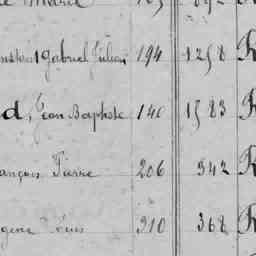 Gabriel Julien 194 1258 R
d, Jean Baptiste 140 1583 R
ançois Pierre 206 542 R
gène Louis 310 368 R